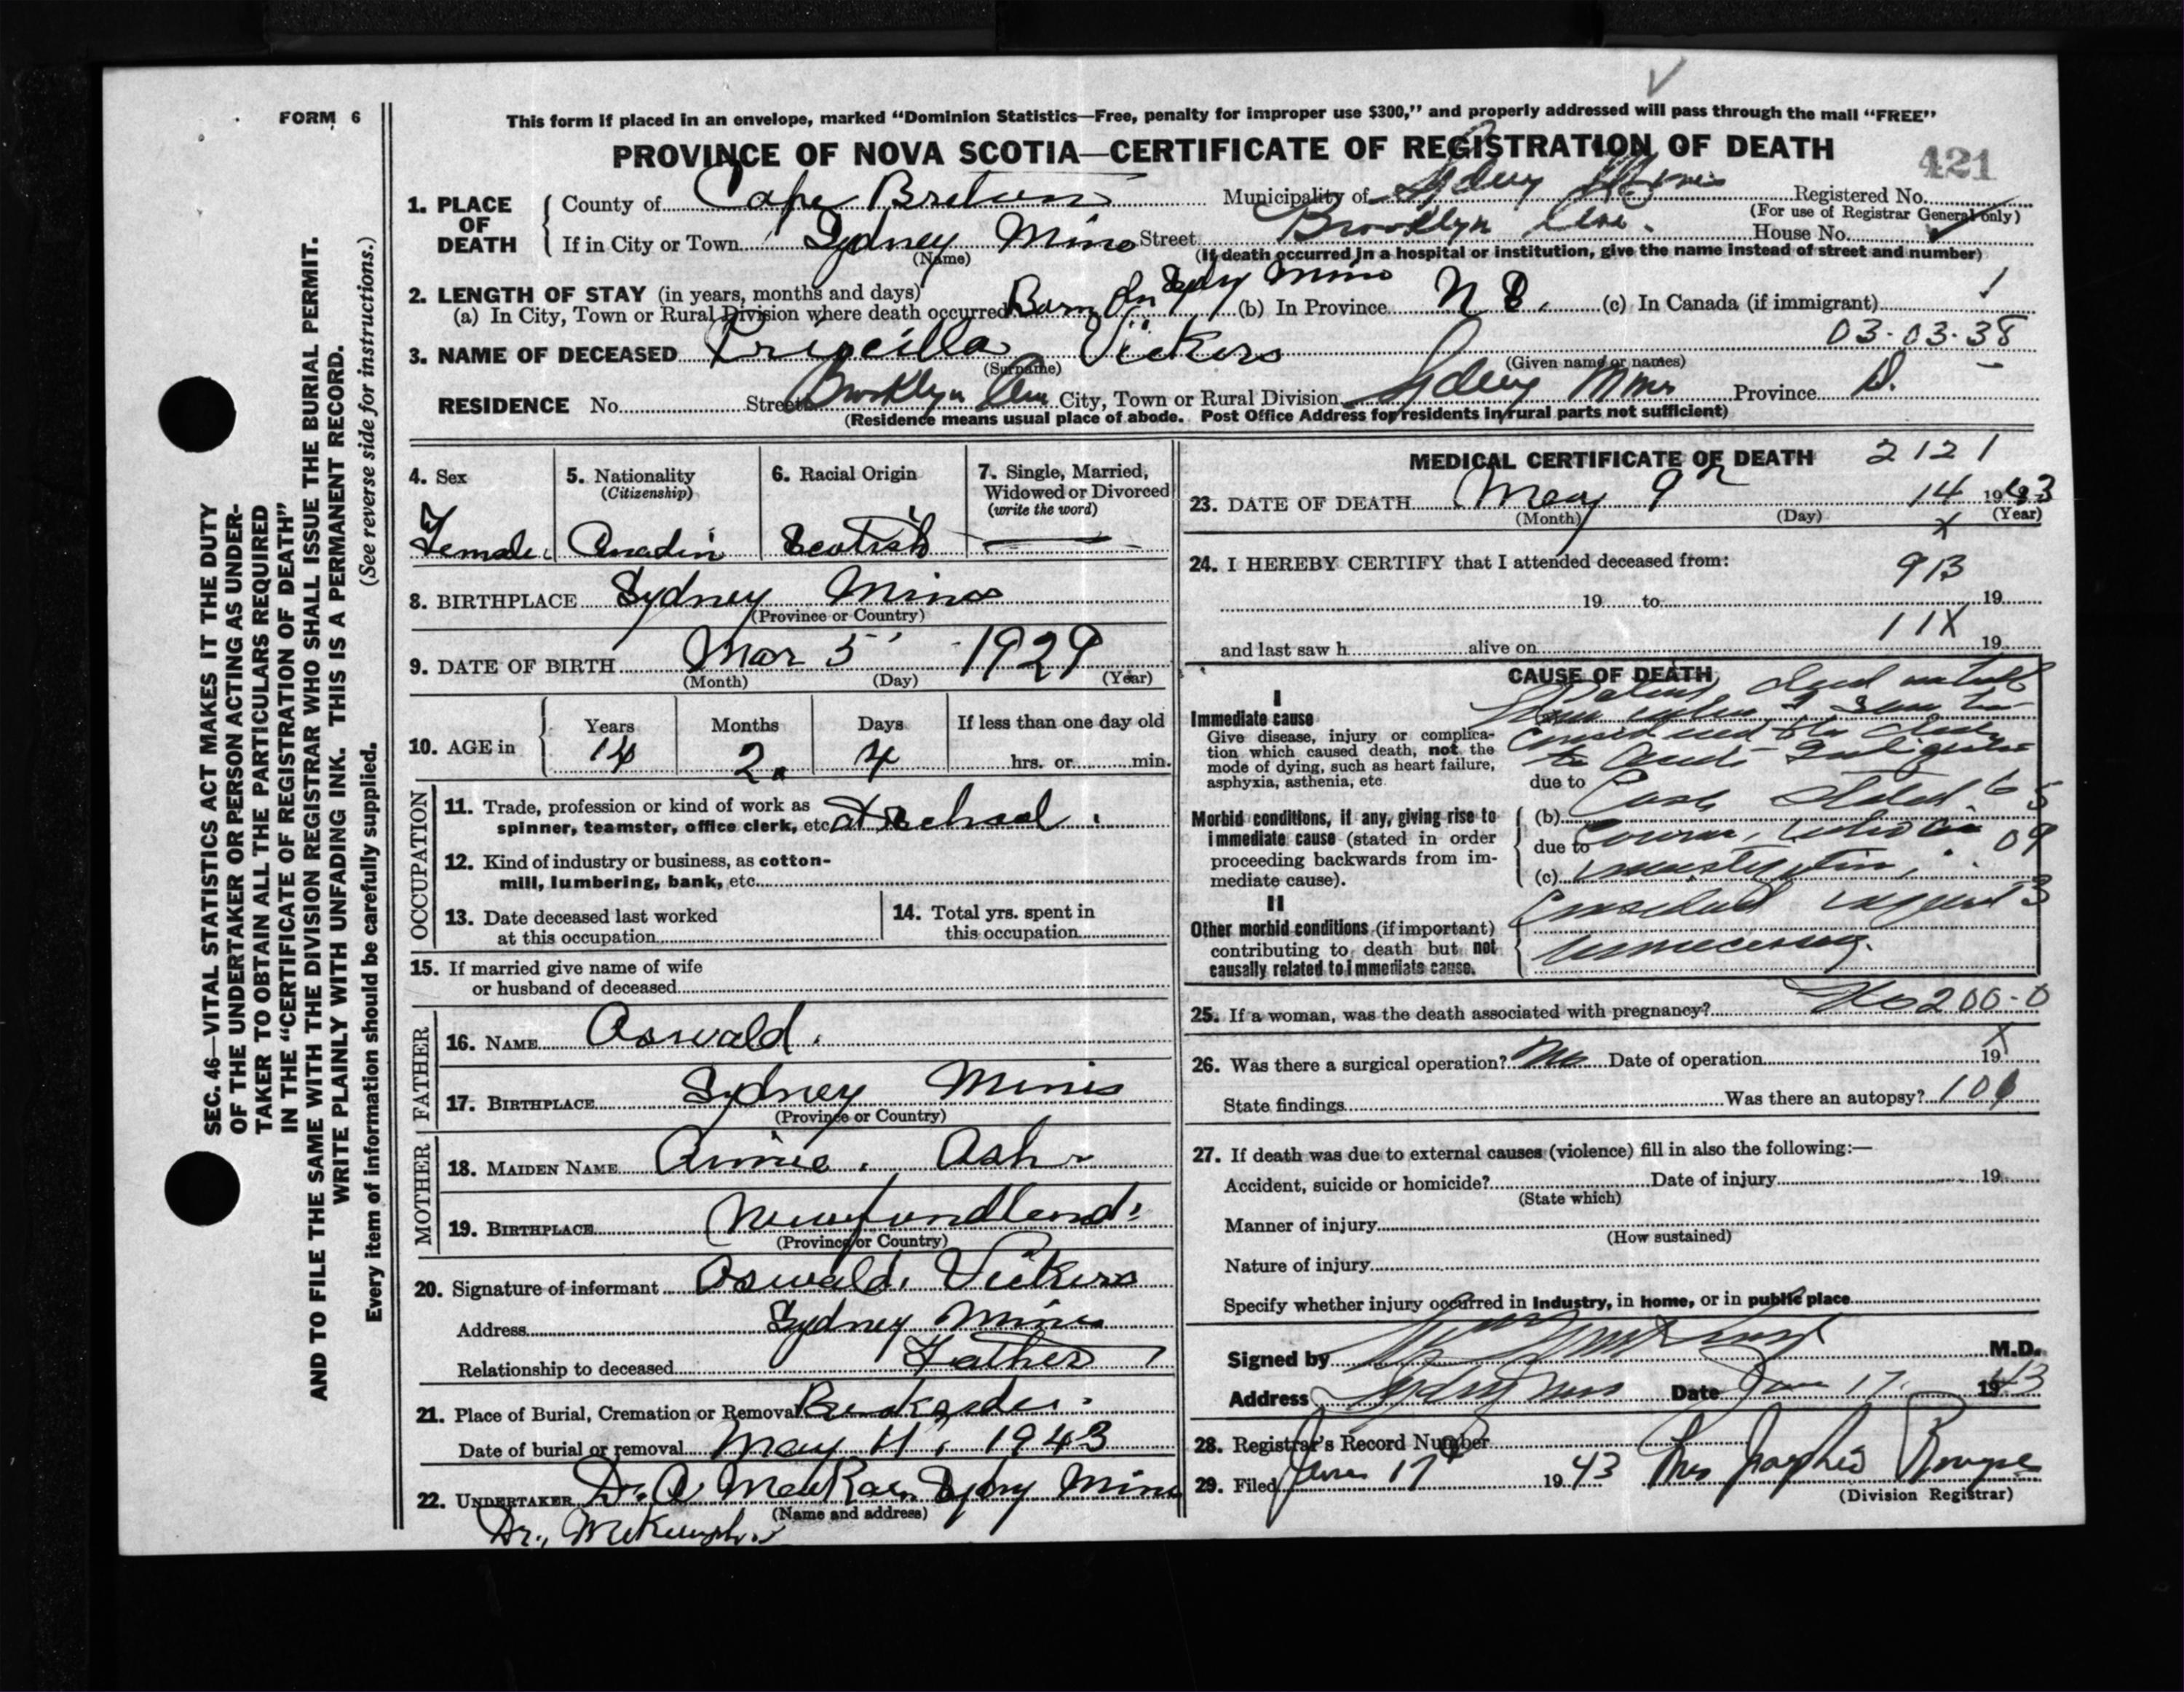 FORM 6
This form if placed in an envelope, marked “Dominion Statistics—Free, penalty for improper use $300,” and properly addressed will pass through the mail “FREE”
PROVINCE OF NOVA SCOTIA—CERTIFICATE OF REGISTRATION OF DEATH
421
1. PLACE OF DEATH
County of Cape Breton Municipality of Sydney Mines Registered No.
(For use of Registrar General only)
If in City or Town Sydney Mines Street Brooklyn House No.
(Name) (If death occurred in a hospital or institution, give the name instead of street and number)
2. LENGTH OF STAY (in years, months and days)
(a) In City, Town or Rural Division where death occurred Born In Sydney Mines (b) In Province (c) In Canada (if immigrant)
03-03-38
3. NAME OF DECEASED Priscilla Vickers
(Surname) (Given name or names)
RESIDENCE No. Street Brooklyn City, Town or Rural Division Sydney Mines Province
(Residence means usual place of abode. Post Office Address for residents in rural parts not sufficient)
SEC. 46—VITAL STATISTICS ACT MAKES IT THE DUTY
OF THE UNDERTAKER OR PERSON ACTING AS UNDER-
TAKER TO OBTAIN ALL THE PARTICULARS REQUIRED
IN THE “CERTIFICATE OF REGISTRATION OF DEATH”
AND TO FILE THE SAME WITH THE DIVISION REGISTRAR WHO SHALL ISSUE THE BURIAL PERMIT.
WRITE PLAINLY WITH UNFADING INK. THIS IS A PERMANENT RECORD.
Every item of information should be carefully supplied. (See reverse side for instructions.)
4. Sex
Female
5. Nationality
(Citizenship)
6. Racial Origin
Scotish
7. Single, Married,
Widowed or Divorced
(write the word)
8. BIRTHPLACE Sydney Mines
(Province or Country)
9. DATE OF BIRTH Mar 5 1929
(Month) (Day) (Year)
10. AGE in
Years Months Days If less than one day old
14 2 4 hrs. or min.
OCCUPATION
11. Trade, profession or kind of work as
spinner, teamster, office clerk, etc. at School
12. Kind of industry or business, as cotton-
mill, lumbering, bank, etc.
13. Date deceased last worked
at this occupation
14. Total yrs. spent in
this occupation
15. If married give name of wife
or husband of deceased
FATHER
16. NAME Oswald
17. BIRTHPLACE Sydney Mines
(Province or Country)
MOTHER
18. MAIDEN NAME Annie Ash
19. BIRTHPLACE Newfundland
(Province or Country)
20. Signature of informant Oswald Vickers
Address Sydney Mines
Relationship to deceased Father
21. Place of Burial, Cremation or Removal
Date of burial or removal May 11, 1943
22. UNDERTAKER MacRae Sydny Mines
(Name and address)
Dr.
MEDICAL CERTIFICATE OF DEATH 2121
23. DATE OF DEATH May 9th 14 1943
(Month) (Day) (Year)
24. I HEREBY CERTIFY that I attended deceased from:
913
19 to 19
11X
and last saw h alive on 19
CAUSE OF DEATH
I
Immediate cause
Give disease, injury or complica-
tion which caused death, not the
mode of dying, such as heart failure,
asphyxia, asthenia, etc.
due to
Morbid conditions, if any, giving rise to
immediate cause (stated in order
proceeding backwards from im-
mediate cause).
(b)
due to
(c)
II
Other morbid conditions (if important)
contributing to death but not
causally related to immediate cause.
unnecessary.
25. If a woman, was the death associated with pregnancy? No 200-0
26. Was there a surgical operation? No Date of operation 19
State findings Was there an autopsy?
27. If death was due to external causes (violence) fill in also the following:—
Accident, suicide or homicide? Date of injury 19
(State which)
Manner of injury
(How sustained)
Nature of injury
Specify whether injury occurred in Industry, in home, or in public place
Signed by M.D.
Address Sydney Mines Date June 17 1943
28. Registrar's Record Number
29. Filed June 17 1943 Mrs
(Division Registrar)